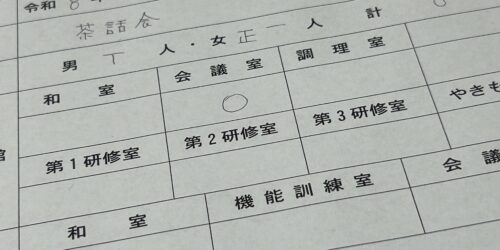 令和8年
茶話会
男 丅 人・女 正一 人 計
和室 会議室 調理室
○
第1研修室 第2研修室 第3研修室 やきも
和室 機能訓練室 会議